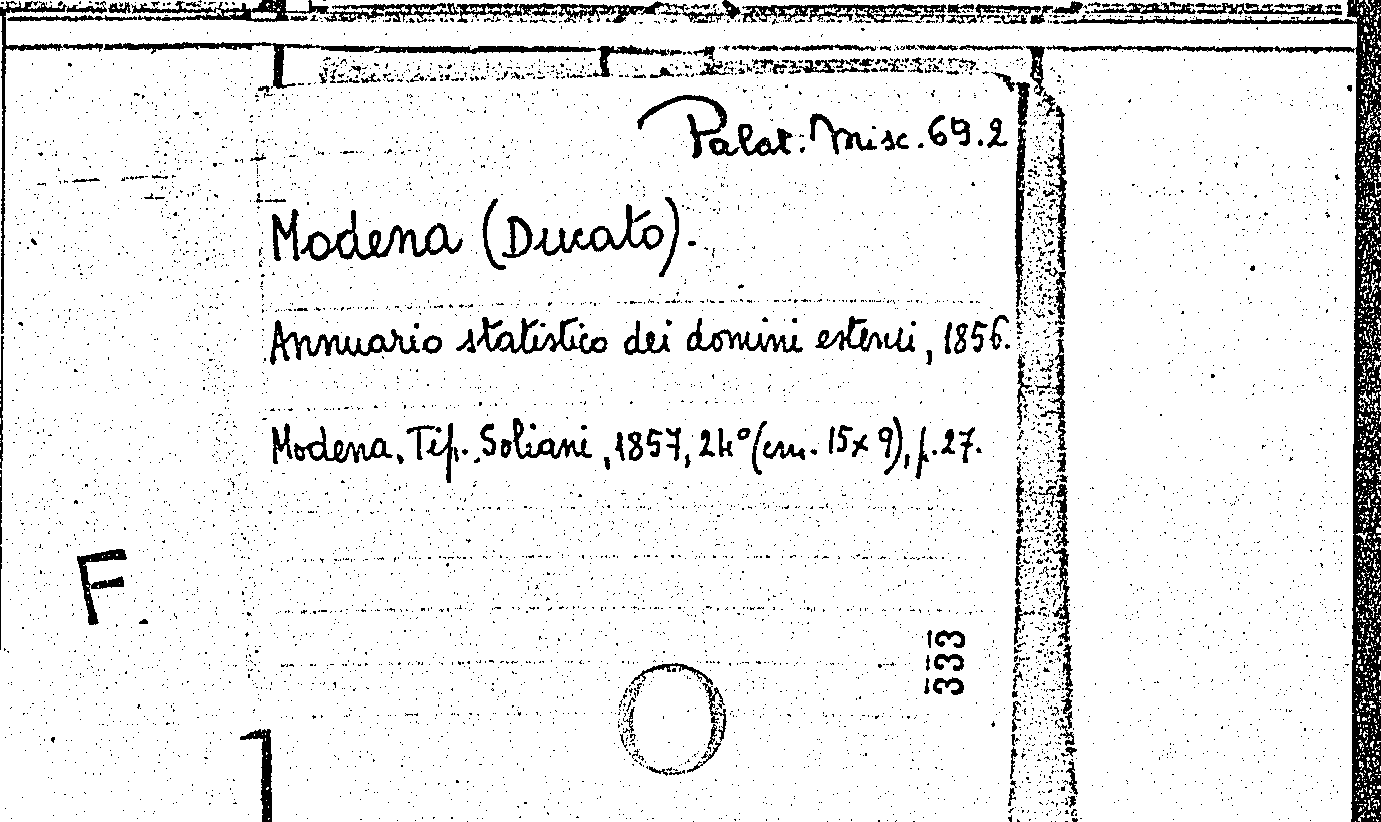 Palat. Misc. 69.2
Modena (Ducato).
Annuario statistico dei domini estensi, 1856.
Modena, Tip. Soliani, 1857, 24° (cm. 15x9), p. 27.
F
333